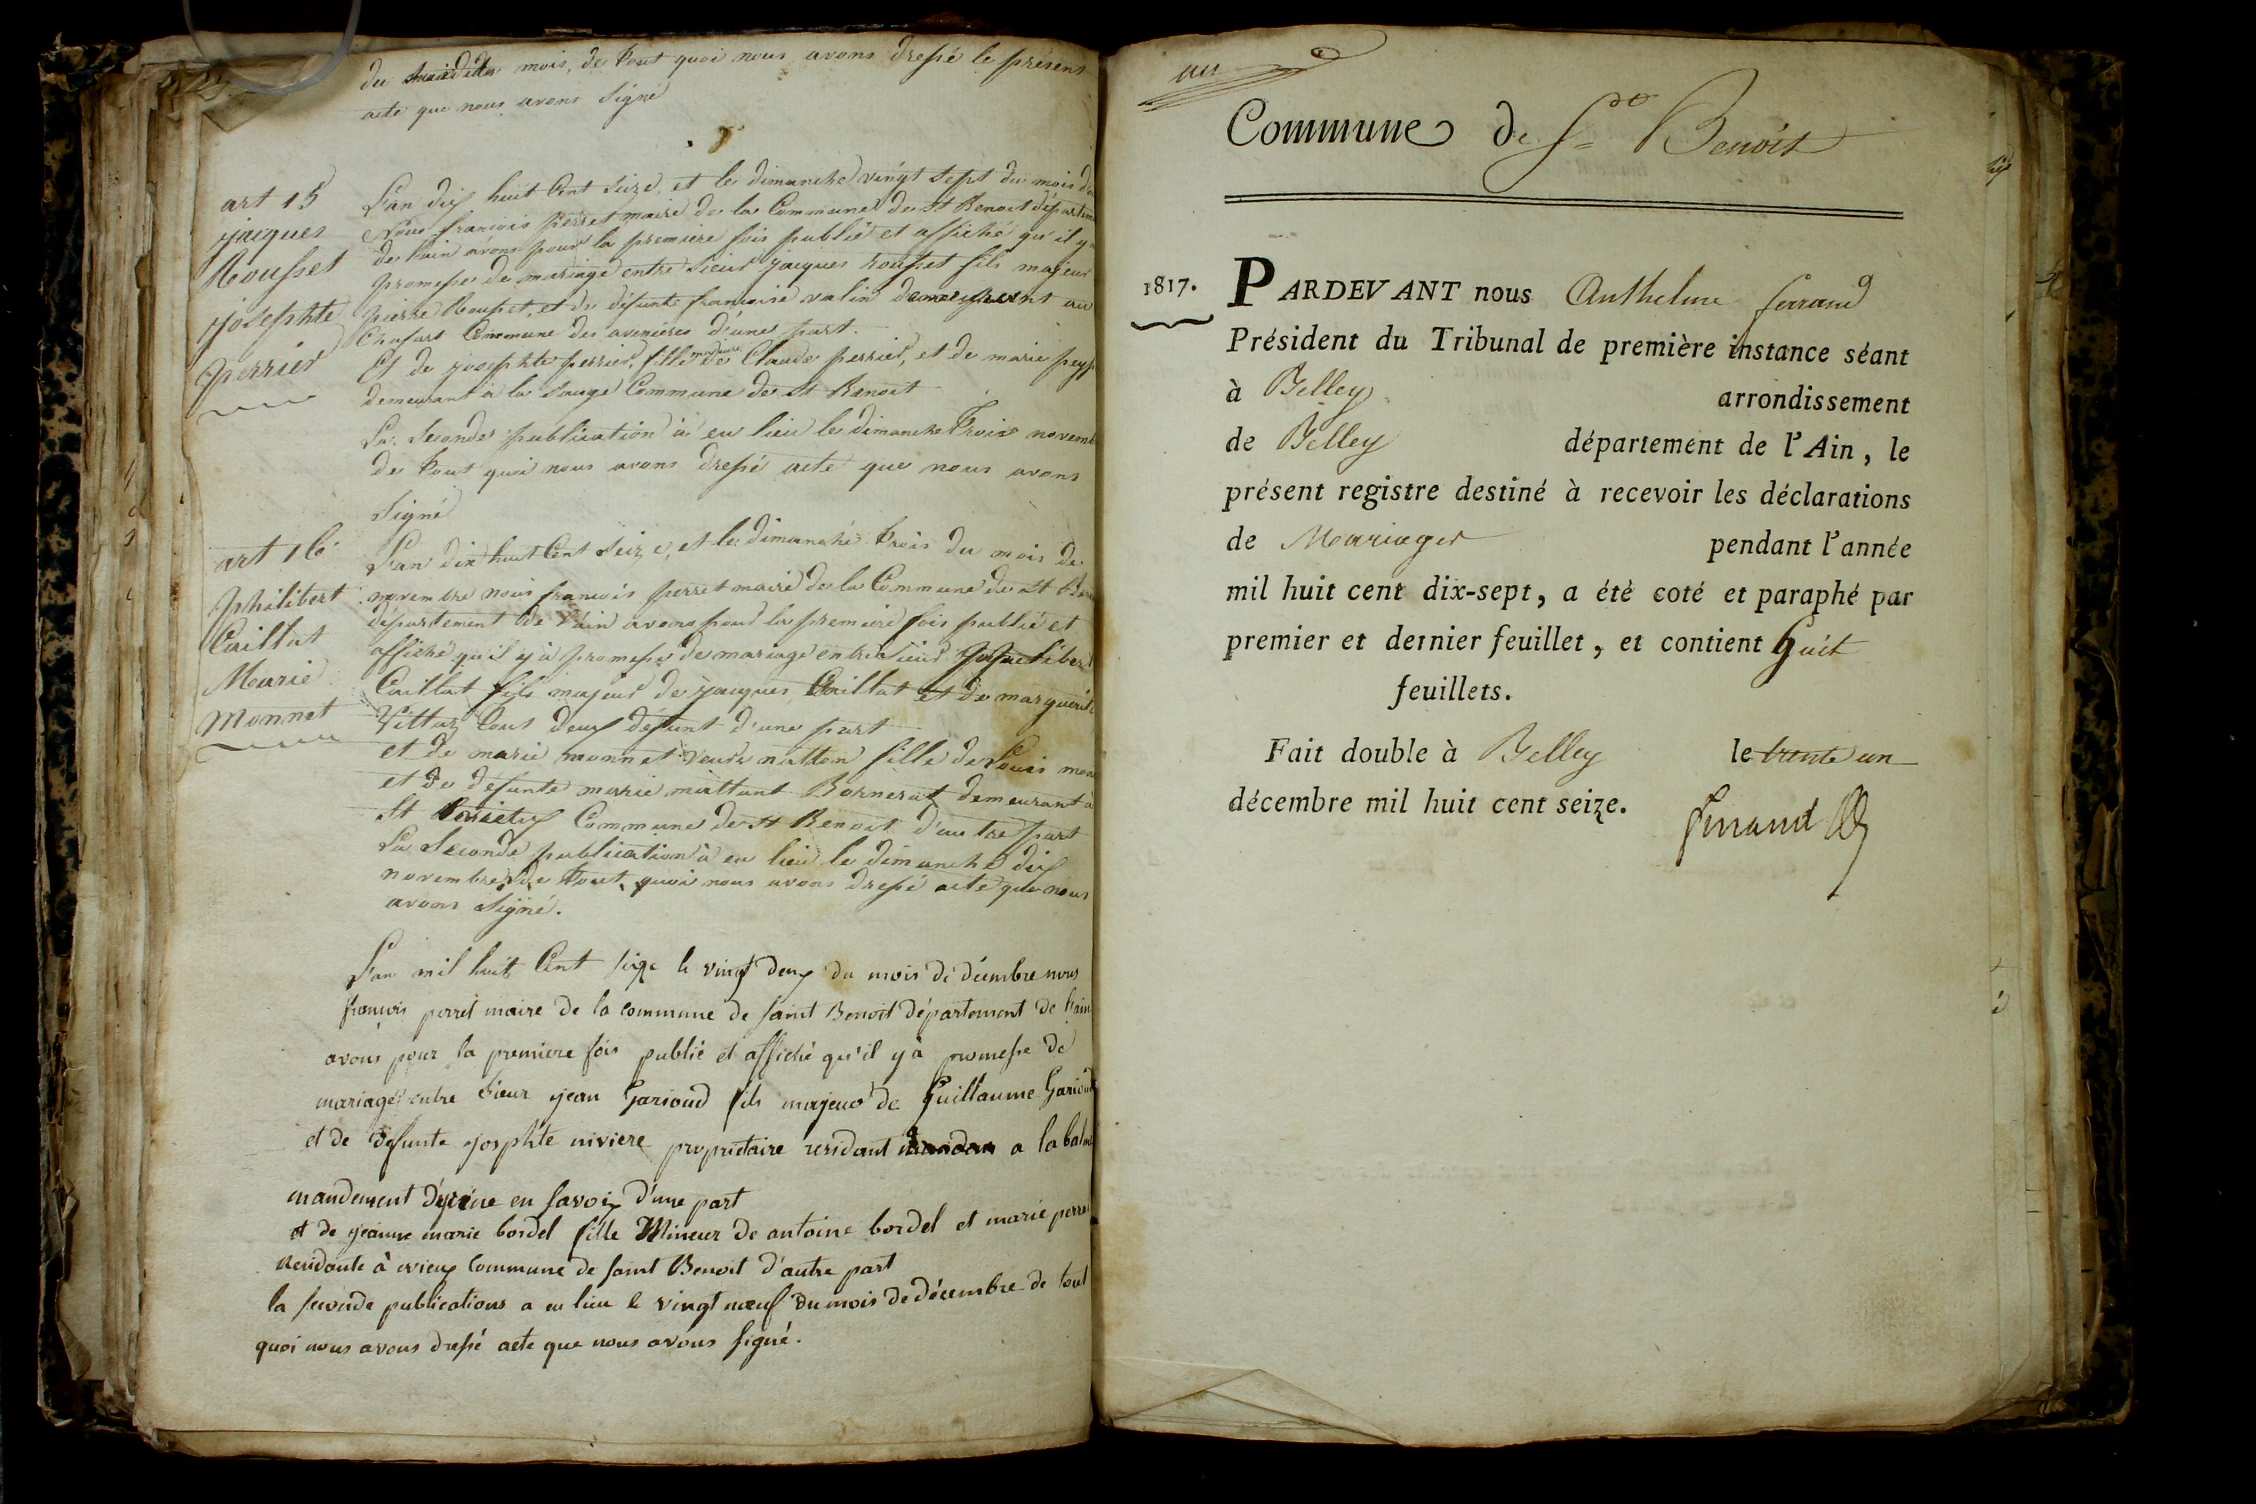 du mois, de tout quoi nous avons dressé le présent
acte que nous avons signé
art 15
jacques
Rousset
josephte
perrier
L'an dix huit Cent seize, et le dimanche vingt sept du mois
Nous francois perret maire de la Commune de St Benoit départem
de l'ain avons pour la premiere fois publié et affiché qu'il y
promesse de mariage entre sieur jacques rousset fils majeur
pierre Rousset, et de défunte francoise valin au
Chafart Commune des avenieres d'une part.
Et de josephte perrier, fille mineure de Claude perrier, et de marie
demeurant à la sauge Commune de St Benoit
La seconde publication à eu lieu le dimanche trois novemb
de tout quoi nous avons dressé acte que nous avons
signé
art 16
philibert
Caillat
Marie
Monnet
L'an dix huit Cent seize, et le dimanche trois du mois de
novembre nous francois perret maire de la Commune de St Be
département de l'ain avons pour la premiere fois publié et
affiché qu'il y à promesse de mariage entre sieur
Caillat fils majeur de jacques Caillat et de marguerite
Vittoz tous deux défunt d'une part
et de marie monnet veuve fille de Louis mon
et de défunte marie demeurant à
St Commune de St Benoit d'autre part
La seconde publication à eu lieu le dimanche dix
novembre de tout quoi nous avons dressé acte que nous
avons signé.
L'an mil huit Cent seize le vingt deux du mois de décembre nous
francois perret maire de la commune de saint Benoit département de l'ain
avons pour la premiere fois publié et affiché qu'il y à promesse de
mariage entre sieur jean Garioud fils majeur de Guillaume Gariou
et de defunte josphte niviere propriétaire residant a la balm
mandement d'yenne en savoix d'une part
et de jeanne marie bordel fille Mineur de antoine bordel et marie perre
Residante à evieux Commune de saint Benoit d'autre part
la seconde publications a eu lieu le vingt neuf du mois de décembre de tout
quoi nous avons dressé acte que nous avons signé.
un
Commune de St Benoit
1817.
PARDEVANT nous Anthelme ferrand
Président du Tribunal de première instance séant
à Belley arrondissement
de Belley département de l'Ain, le
présent registre destiné à recevoir les déclarations
de Mariages pendant l'année
mil huit cent dix-sept, a été coté et paraphé par
premier et dernier feuillet, et contient huit
feuillets.
Fait double à Belley le trente un
décembre mil huit cent seize.
ferrand